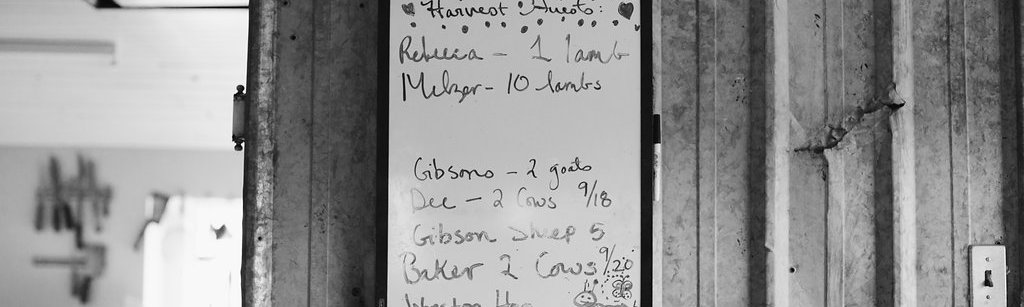 Harvest Guests:
Rebecca - 1 lamb
Melzer - 10 lambs
Gibsons - 2 goats
Dee - 2 Cows 9/18
Gibson Sheep 5
Baker 2 Cows 9/20